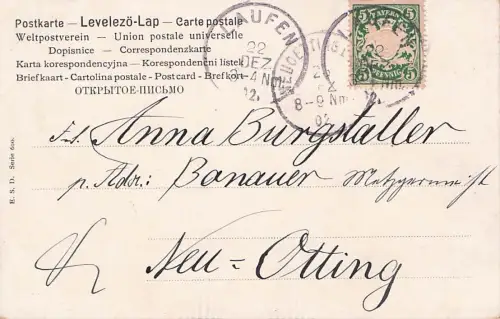 Postkarte — Levelező-Lap — Carte postale
Weltpostverein — Union postale universelle
Dopisnice — Correspondenzkarte
Karta korespondencyjna — Korespondenni listek
Briefkaart - Cartolina postale - Postcard - Brefkort
ОТКРЫТОЕ-ПИСЬМО
LAUFEN
22
DEZ
3-4 N
02.
NEUOETTING
8-9 Nm.
02
5 5
BAYERN
PFENNIG
5 5
E. S. D. Serie 600.
Frl. Anna Burgstaller
p. Adr: Bonauer Metzgermeist
Neu = Otting